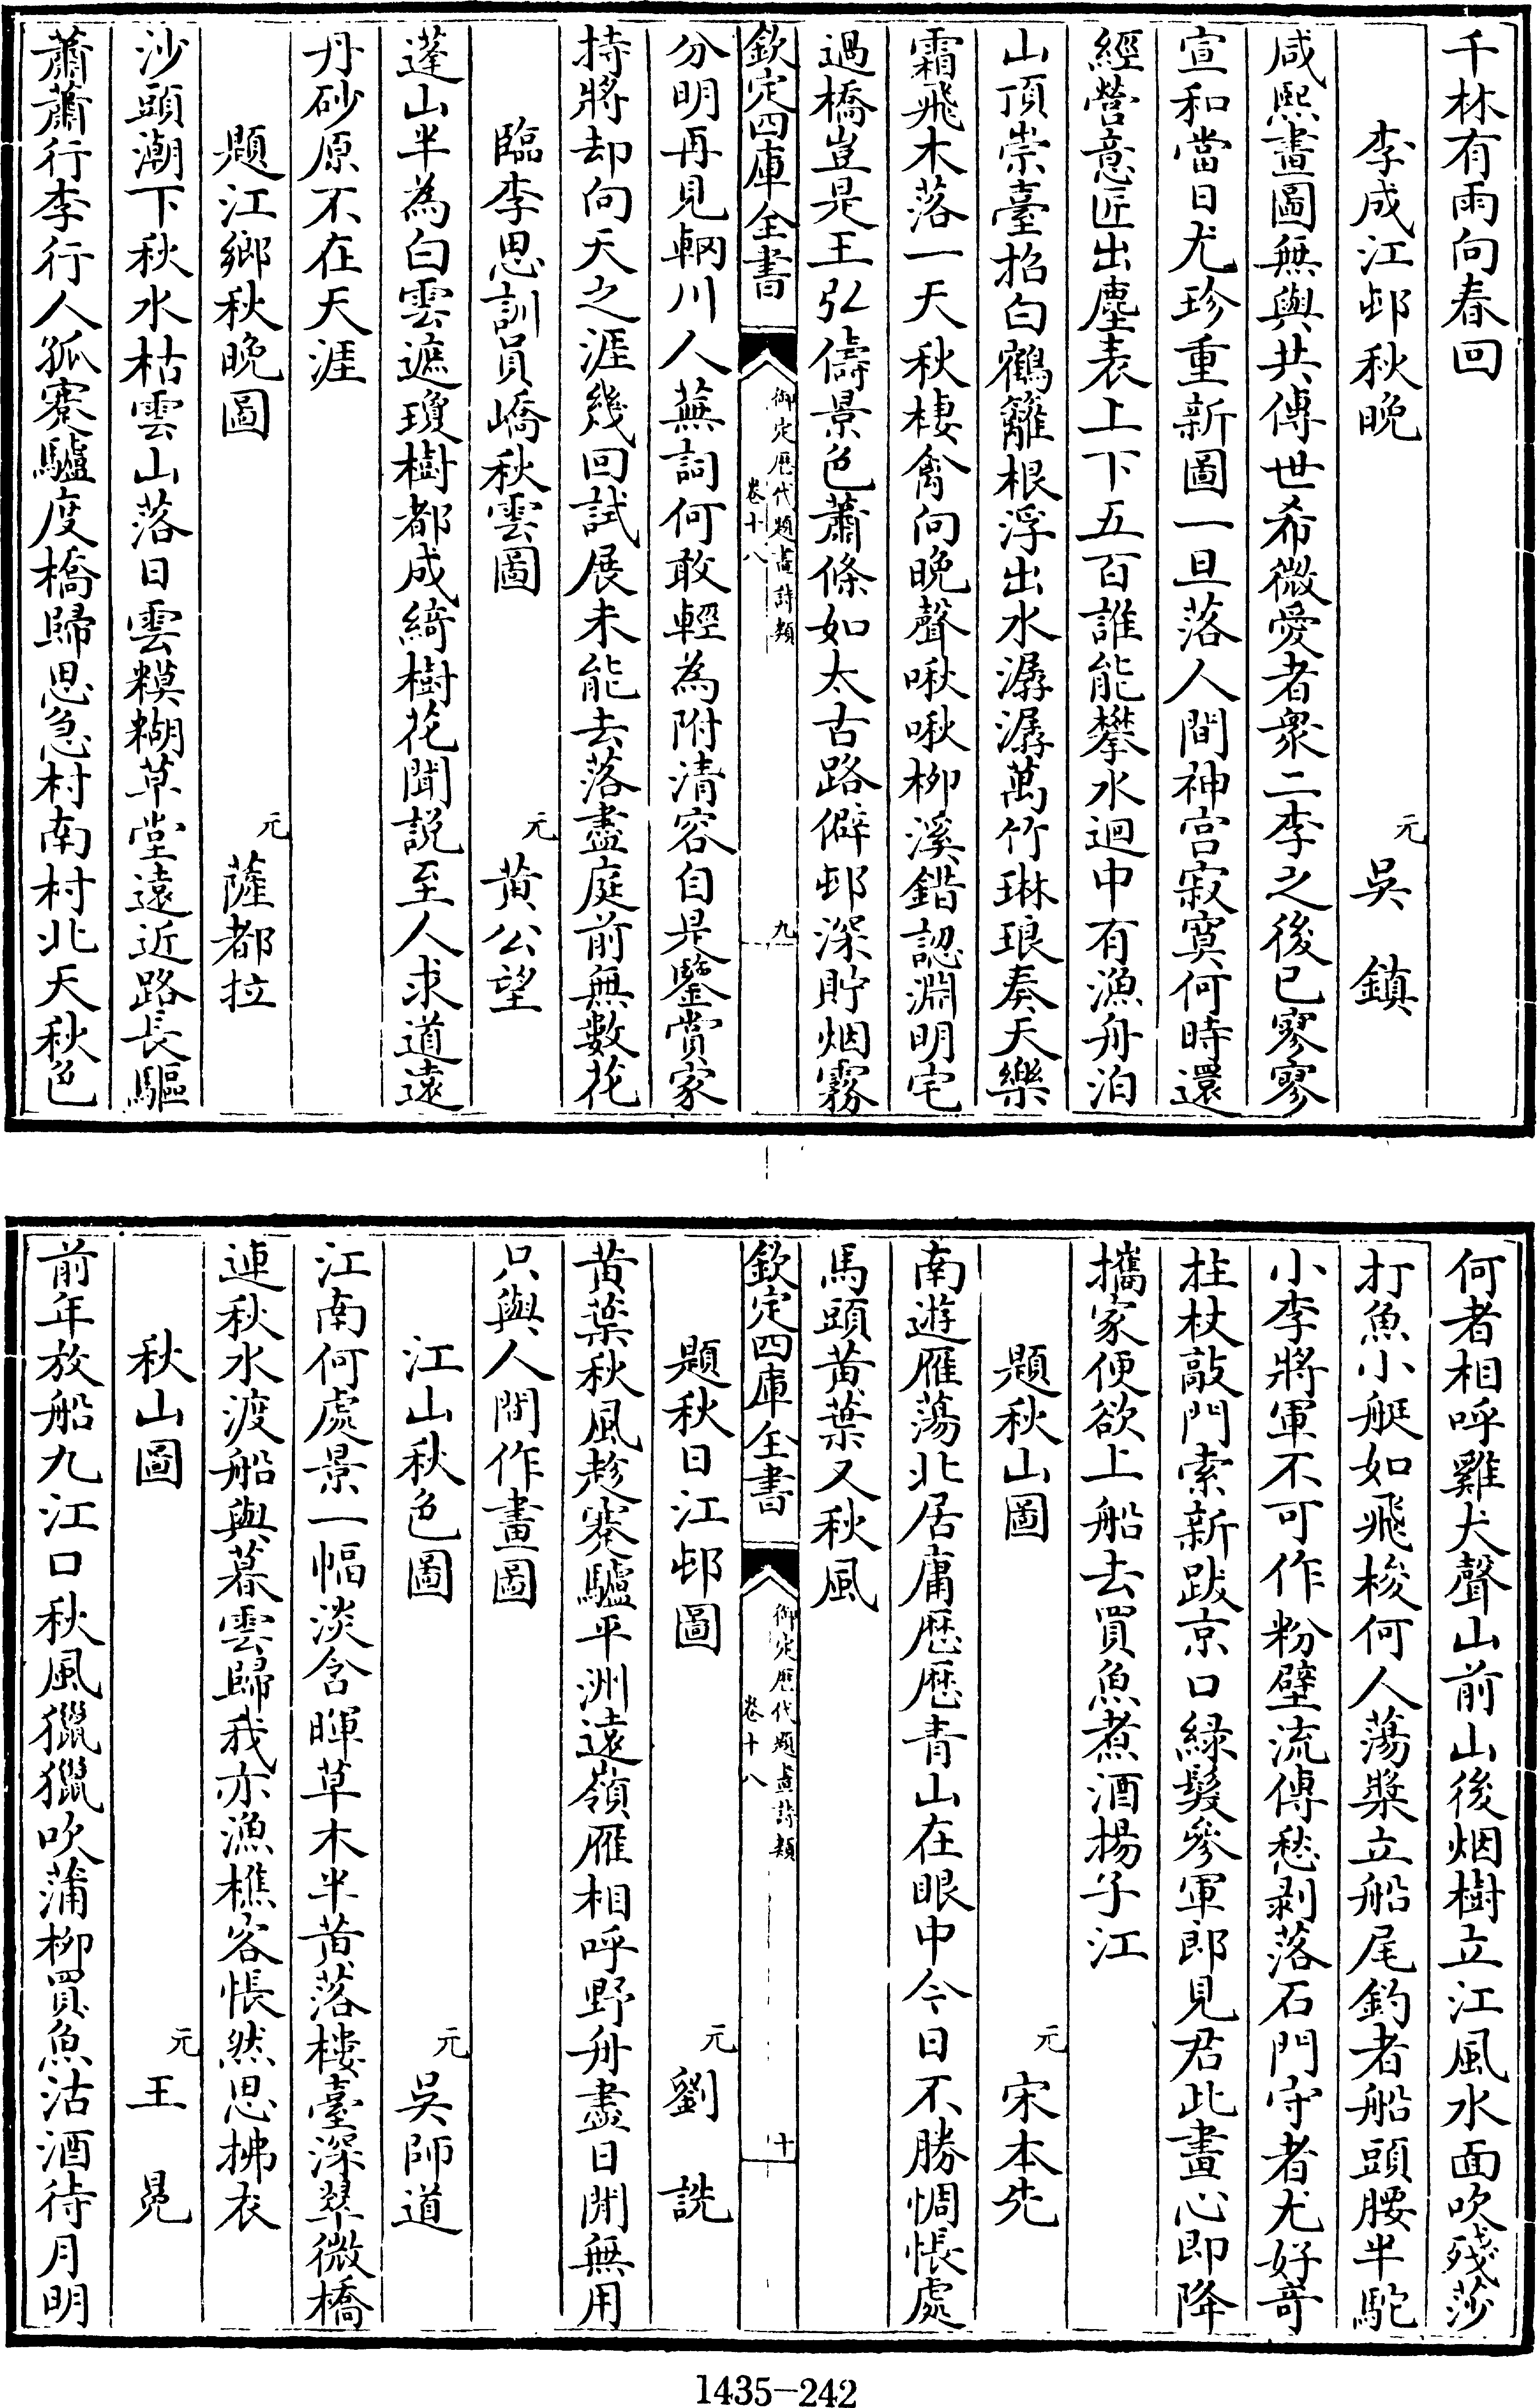 千林有雨向春回
李成江邨秋晚 元 吳鎮
咸熙畫圖無與共傳世希微愛者衆二李之後已寥寥
宣和當日尤珍重新圖一旦落人間神宫寂寞何時還
經營意匠出塵表上下五百誰能攀水迴中有漁舟泊
山頂崇臺招白鶴籬根浮出水潺潺萬竹琳琅奏天樂
霜飛木落一天秋棲禽向晚聲啾啾柳溪錯認淵明宅
過橋豈是王弘儔景色蕭條如太古路僻邨深貯烟霧
欽定四庫全書 御定歷代題畫詩類 卷十八 九
分明再見輞川人蕪詞何敢輕為附清容自是鑒賞家
持將却向天之涯幾回試展未能去落盡庭前無數花
臨李思訓員嶠秋雲圖 元 黃公望
蓬山半為白雲遮瓊樹都成綺樹花聞説至人求道遠
丹砂原不在天涯
題江鄉秋晚圖 元 薩都拉
沙頭潮下秋水枯雲山落日雲糢糊草堂遠近路長驅
蕭蕭行李行人孤蹇驢度橋歸思急村南村北天秋色
何者相呼雞犬聲山前山後烟樹立江風水面吹殘莎
打魚小艇如飛梭何人蕩槳立船尾釣者船頭腰半駝
小李將軍不可作粉壁流傳愁剥落石門守者尤好奇
拄杖敲門索新跋京口緑髮參軍郎見君此畫心即降
攜家便欲上船去買魚煮酒揚子江
題秋山圖 元 宋本先
南遊雁蕩北居庸歷歷青山在眼中今日不勝惆悵處
馬頭黄葉又秋風
欽定四庫全書 御定歷代題畫詩類 卷十八 十
題秋日江邨圖 元 劉詵
黄葉秋風趁蹇驢平洲遠嶺雁相呼野舟盡日閒無用
只與人間作畫圖
江山秋色圖 元 吳師道
江南何處景一幅淡含暉草木半黄落樓臺深翠微橋
連秋水渡船與暮雲歸我亦漁樵客悵然思拂衣
秋山圖 元 王冕
前年放船九江口秋風獵獵吹蒲柳買魚沽酒待月明
1435-242